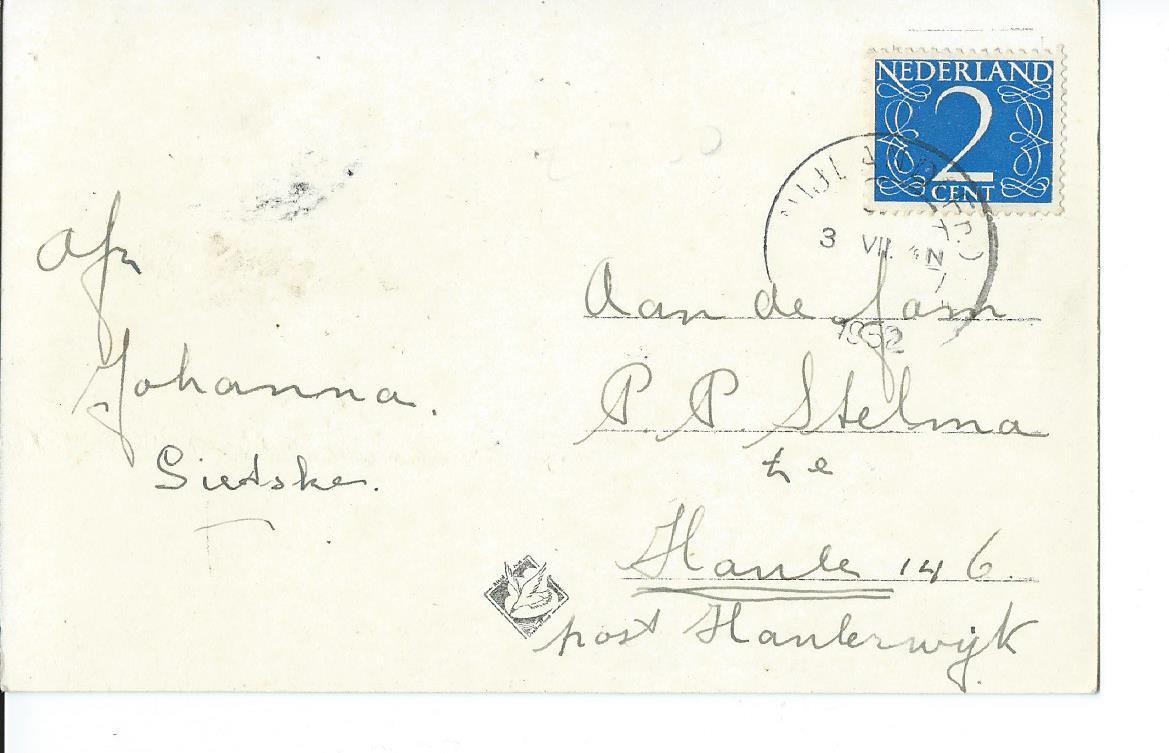 NEDERLAND
2
CENT
3 VII
1952
Afz
Johanna.
Sietske.
Aan de Jasm
P. P. Stelma
te
Haule 146.
post Haulerwijk